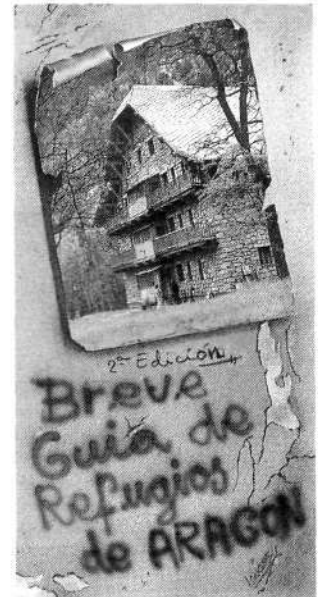 2ª Edición
Breve
Guía de
Refugios
de ARAGON